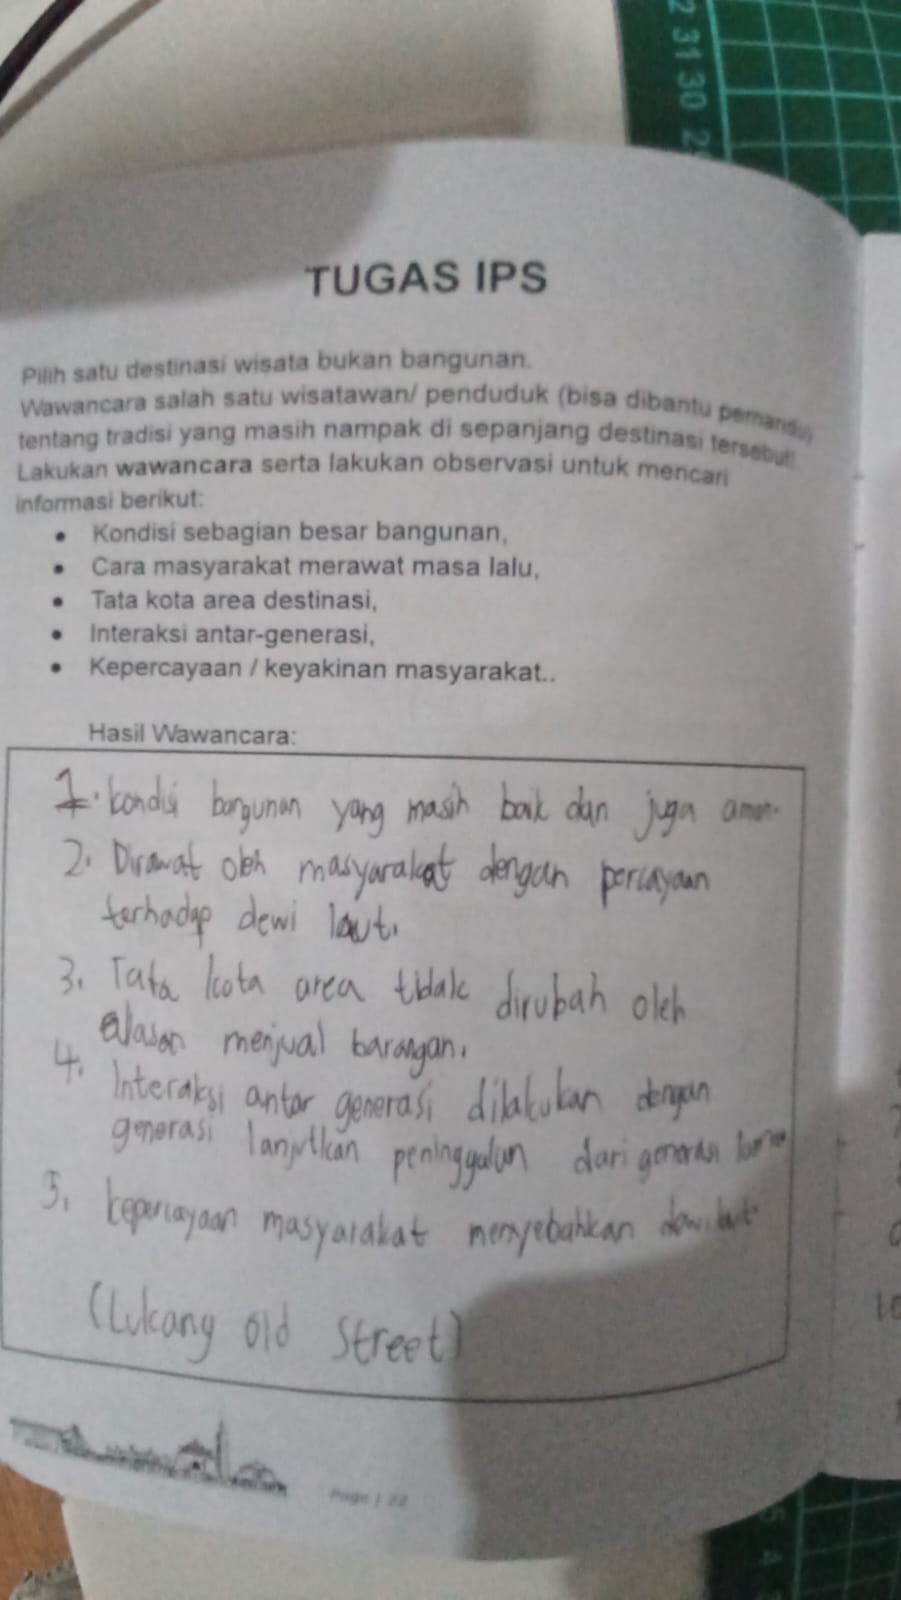 2 31 30 2
TUGAS IPS
Pilih satu destinasi wisata bukan bangunan.
Wawancara salah satu wisatawan/ penduduk (bisa dibantu pemandu)
tentang tradisi yang masih nampak di sepanjang destinasi tersebut!
Lakukan wawancara serta lakukan observasi untuk mencari
informasi berikut:
• Kondisi sebagian besar bangunan,
• Cara masyarakat merawat masa lalu,
• Tata kota area destinasi,
• Interaksi antar-generasi,
• Kepercayaan / keyakinan masyarakat..
Hasil Wawancara:
1. kondisi bangunan yang masih baik dan juga aman.
2. Dirawat oleh masyarakat dengan percayaan
terhadap dewi laut.
3. Tata kota area tidak dirubah oleh
alasan menjual barangan.
4. Interaksi antar generasi dilakukan dengan
generasi lanjutkan peninggalan dari generasi lama
5. kepercayaan masyarakat menyebahkan dewi laut.
(Lukang old street)
Page | 22
10
5 4